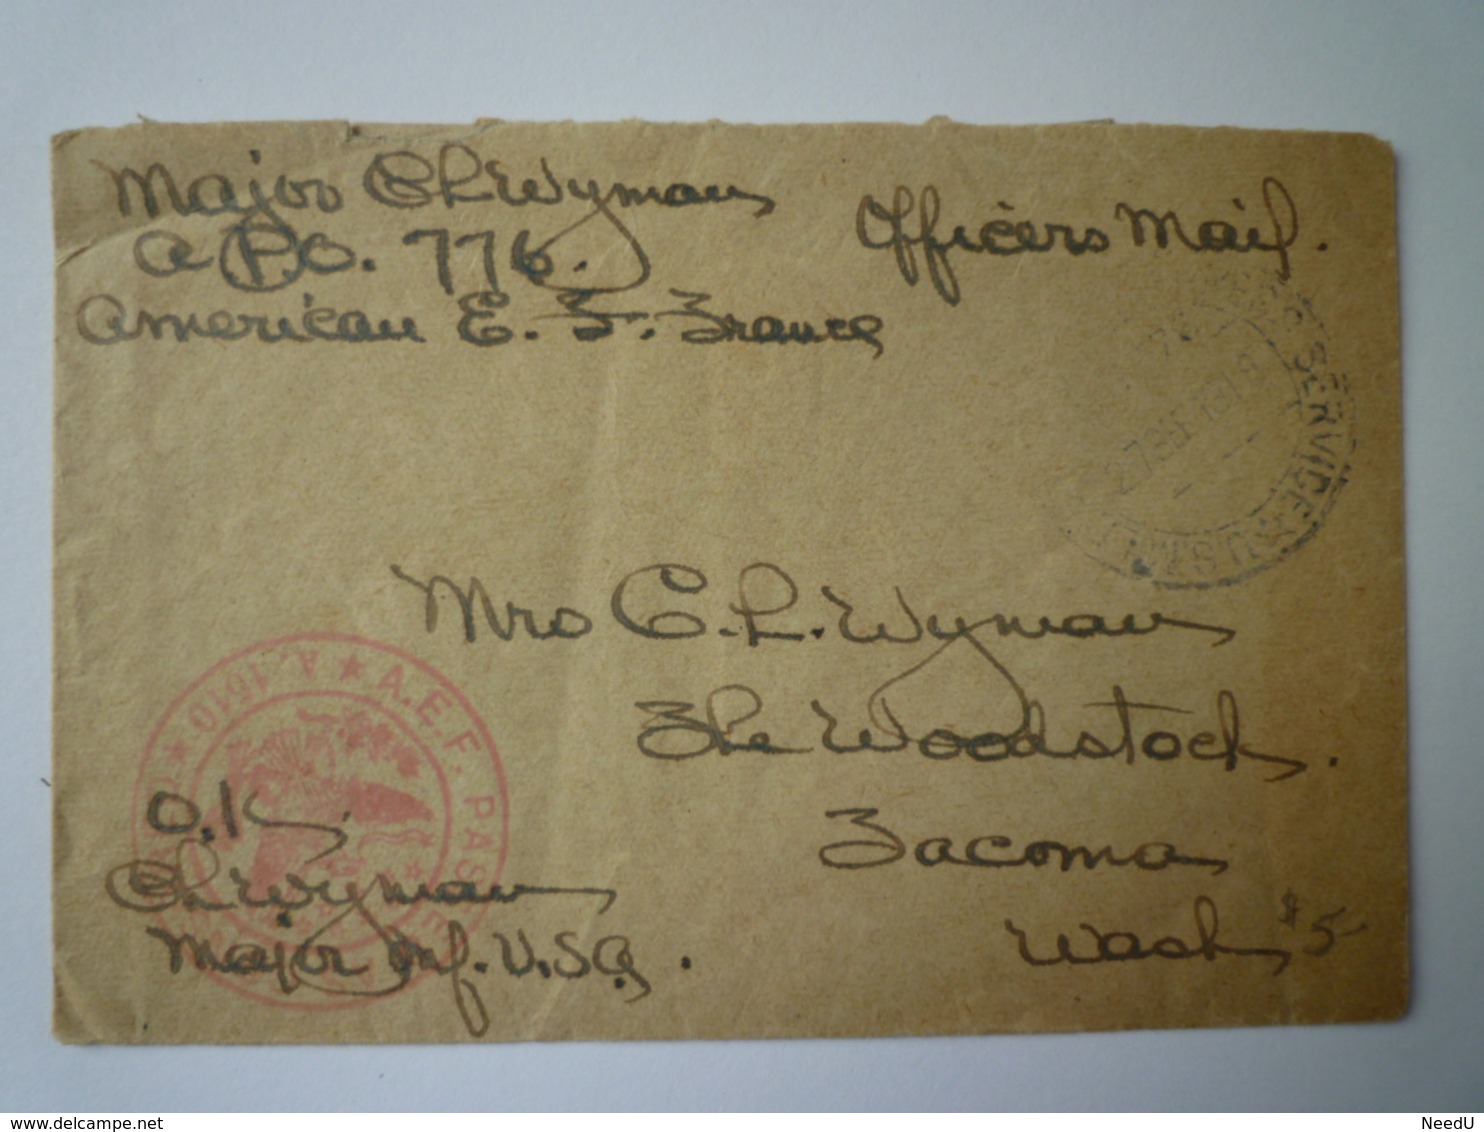 Major C L Wyman
A.P.O. 776.
American E. F. France
Officers Mail.
SERVICE
U.S.
Mrs C. L. Wyman
The Woodstock.
Tacoma
Wash
$5-
A.E.F. PASSED
A. 1510
O.K.
C L Wyman
Major Inf. U.S.A.
delcampe.net
NeedU